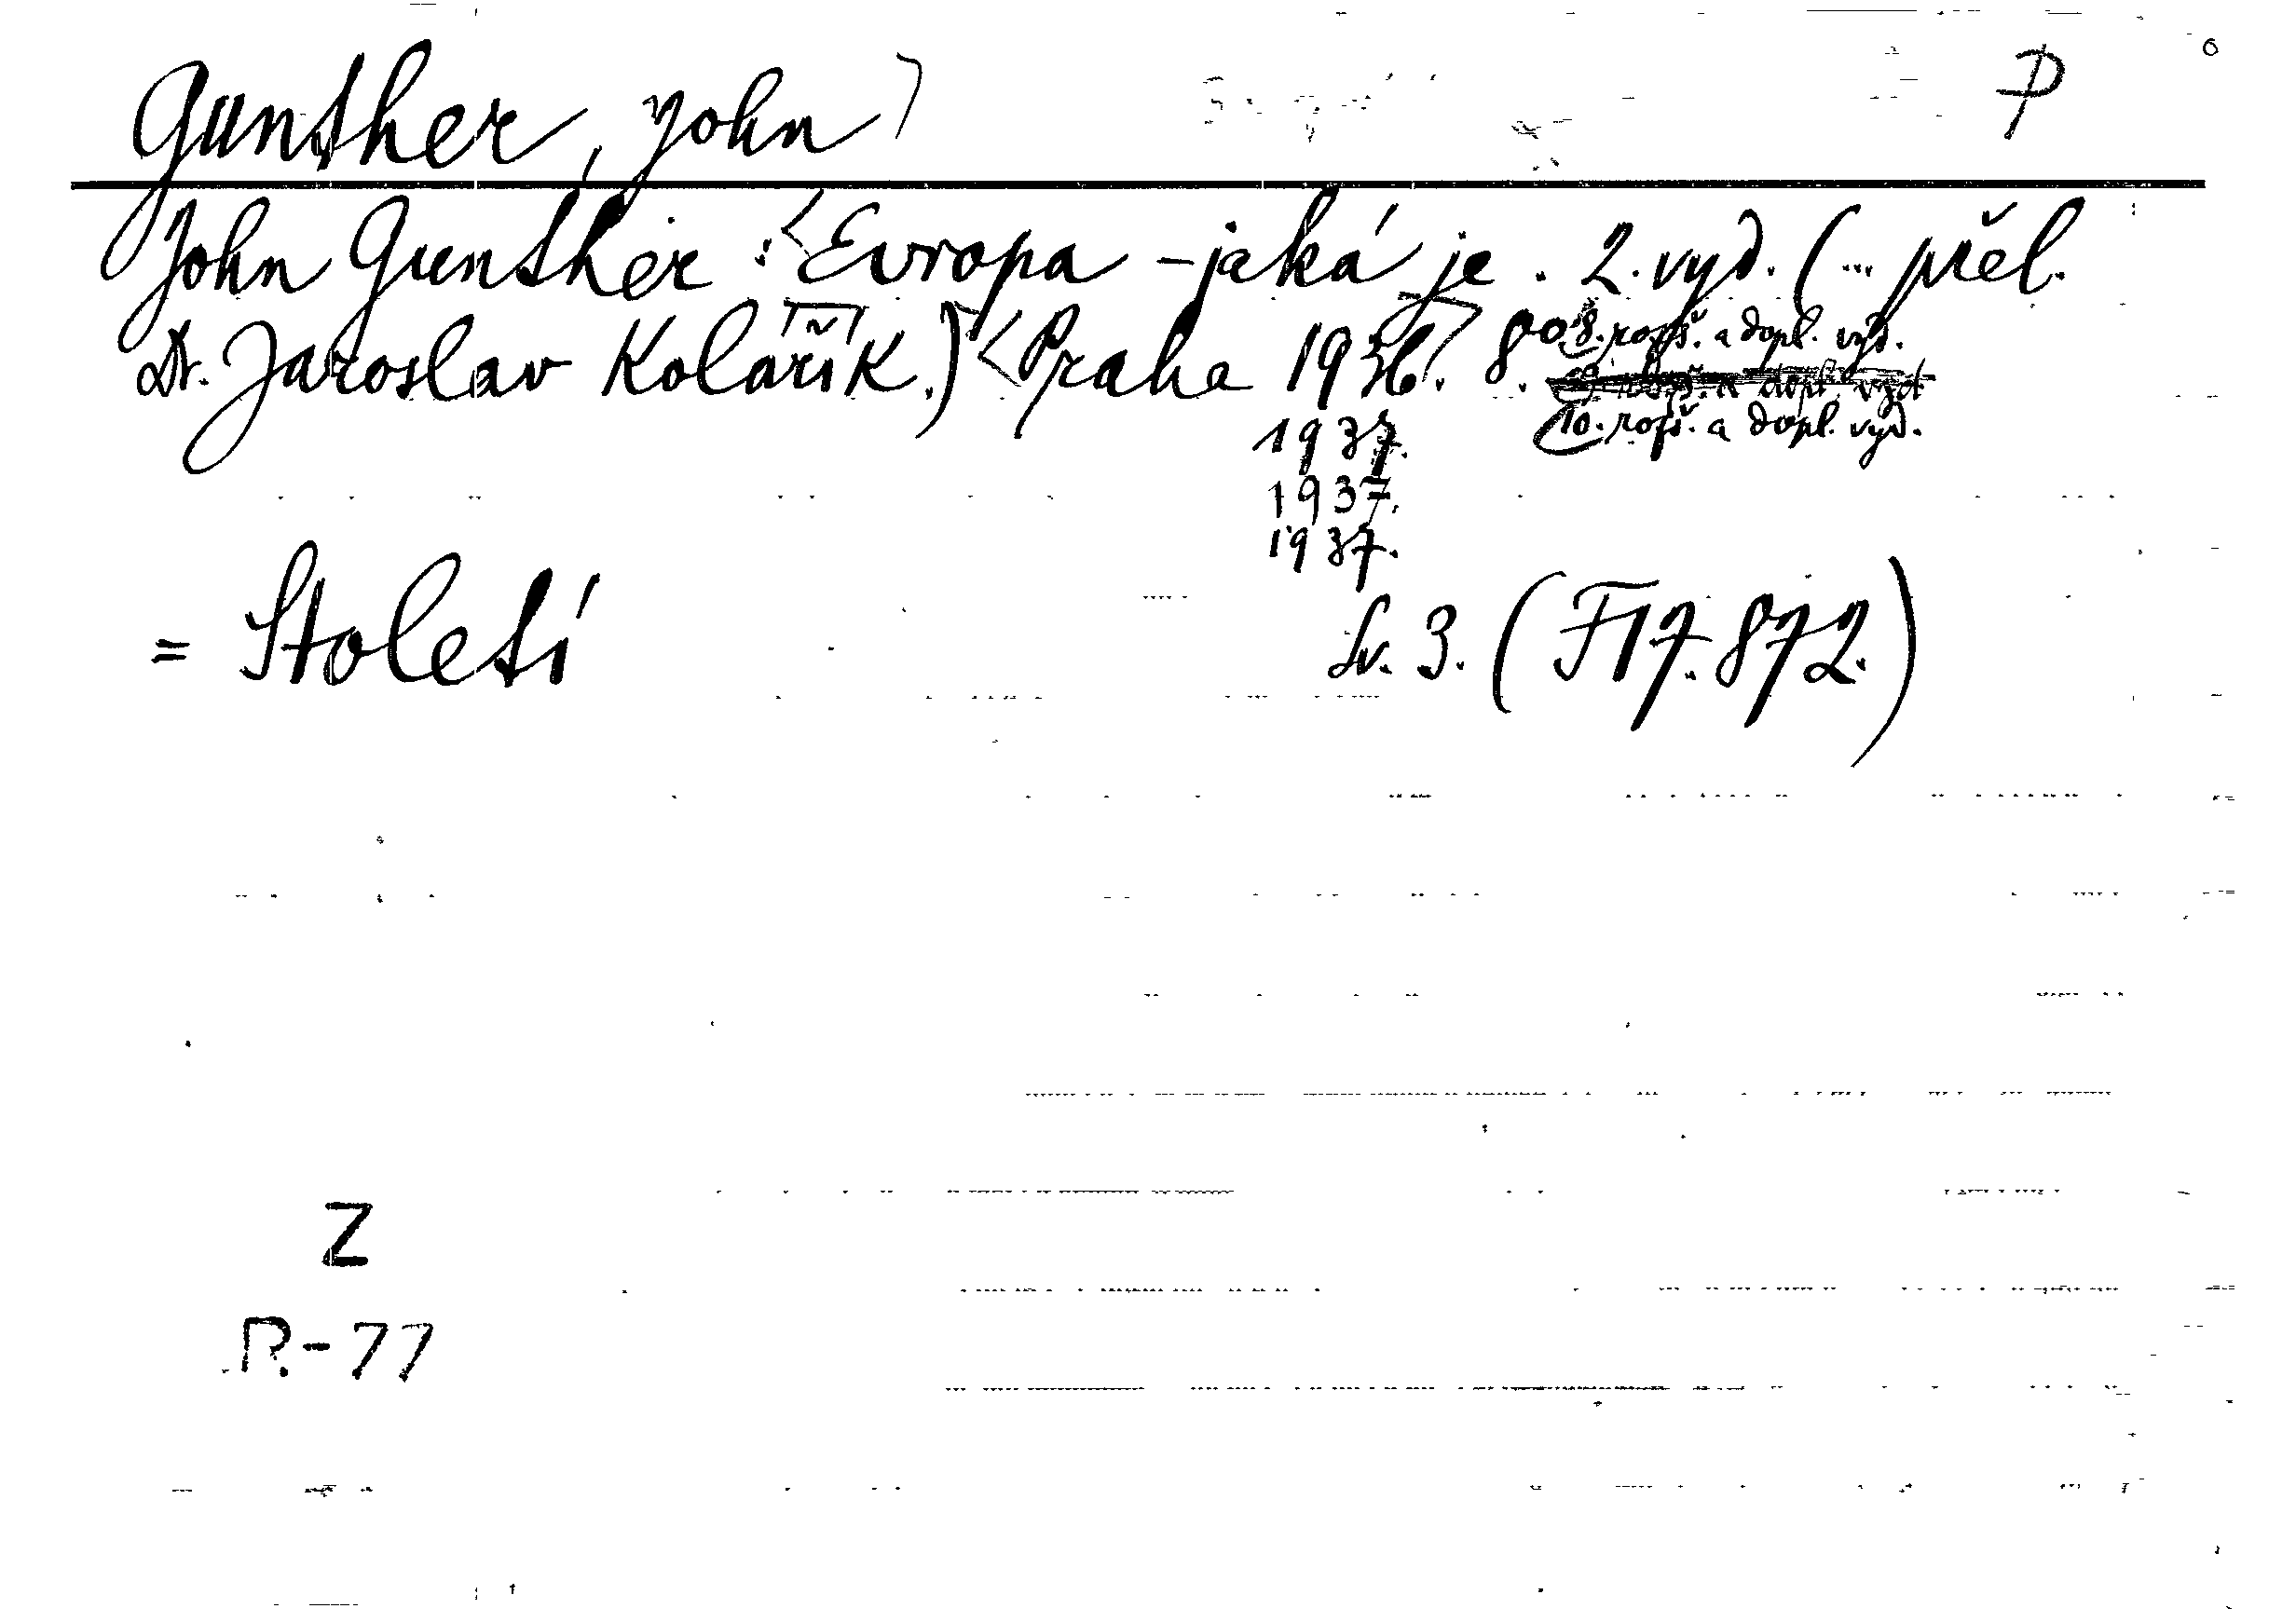 Gunther, John P
John Gunther: Evropa - jaká je. 2. vyd. (... přel.
Dr. Jaroslav Kolařík.) Praha 1936. 8°. 8. rozš. a dopl. vyd.
9. rozš. a dopl. vyd.
1937. 10. rozš. a dopl. vyd.
1937.
1937.
= Století Sv. 3. (F 17.872.)
Z
R-77